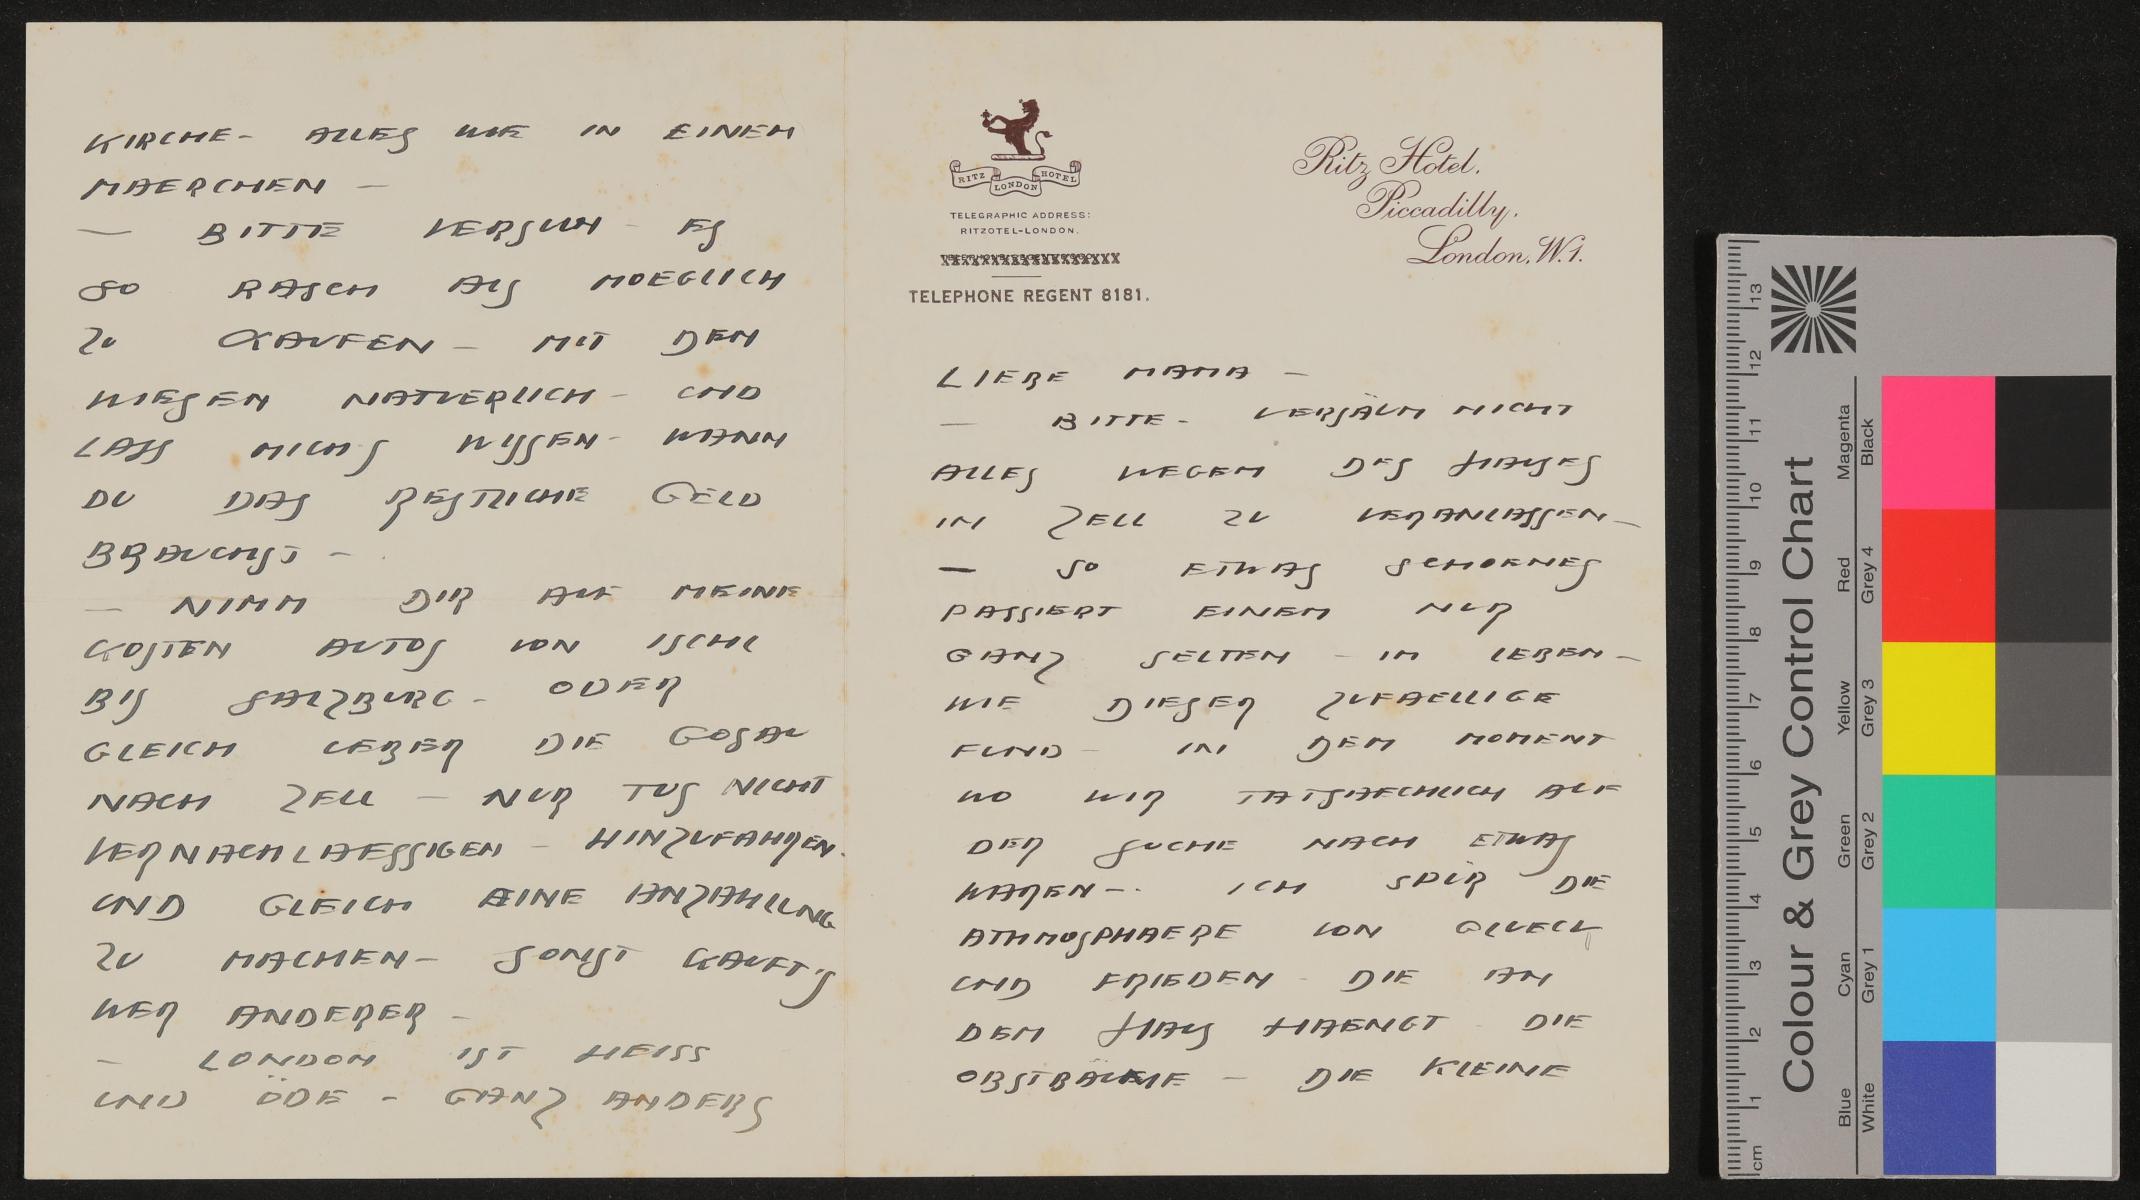 RITZ LONDON HOTEL
TELEGRAPHIC ADDRESS:
RITZOTEL-LONDON.
TELEPHONE REGENT 8181.
Ritz Hotel,
Piccadilly,
London, W.1.
LIEBE MAMA —
— BITTE - VERSÄUM NICHT
ALLES WEGEN DES HAUSES
IN ZELL ZU VERANLASSEN —
— SO ETWAS SCHOENES
PASSIERT EINEM NUR
GANZ SELTEN - IM LEBEN —
WIE DIESER ZUFAELLIGE
FUND - IN DEM MOMENT
WO WIR TATSAECHLICH AUF
DER SUCHE NACH ETWAS
WAREN —. ICH SPÜR DIE
ATHMOSPHAERE VON GLUECK
UND FRIEDEN - DIE AN
DEM HAUS HAENGT - DIE
OBSTBÄUME — DIE KLEINE
KIRCHE - ALLES WIE IN EINEM
MAERCHEN —
— BITTE VERSUCH - ES
SO RASCH ALS MOEGLICH
ZU KAUFEN — MIT DEN
WIESEN NATUERLICH - UND
LASS MICH'S WISSEN - WANN
DU DAS RESTLICHE GELD
BRAUCHST —.
— NIMM DIR AUF MEINE
KOSTEN AUTOS VON ISCHL
BIS SALZBURG - ODER
GLEICH UEBER DIE GOSAU
NACH ZELL — NUR TUS NICHT
VERNACHLAESSIGEN — HINZUFAHREN.
UND GLEICH EINE ANZAHLUNG
ZU MACHEN — SONST KAUFT'S
WER ANDERER —
— LONDON IST HEISS
UND ÖDE - GANZ ANDERS
Colour & Grey Control Chart
Blue Cyan Green Yellow Red Magenta
White Grey 1 Grey 2 Grey 3 Grey 4 Black
cm 1 2 3 4 5 6 7 8 9 10 11 12 13